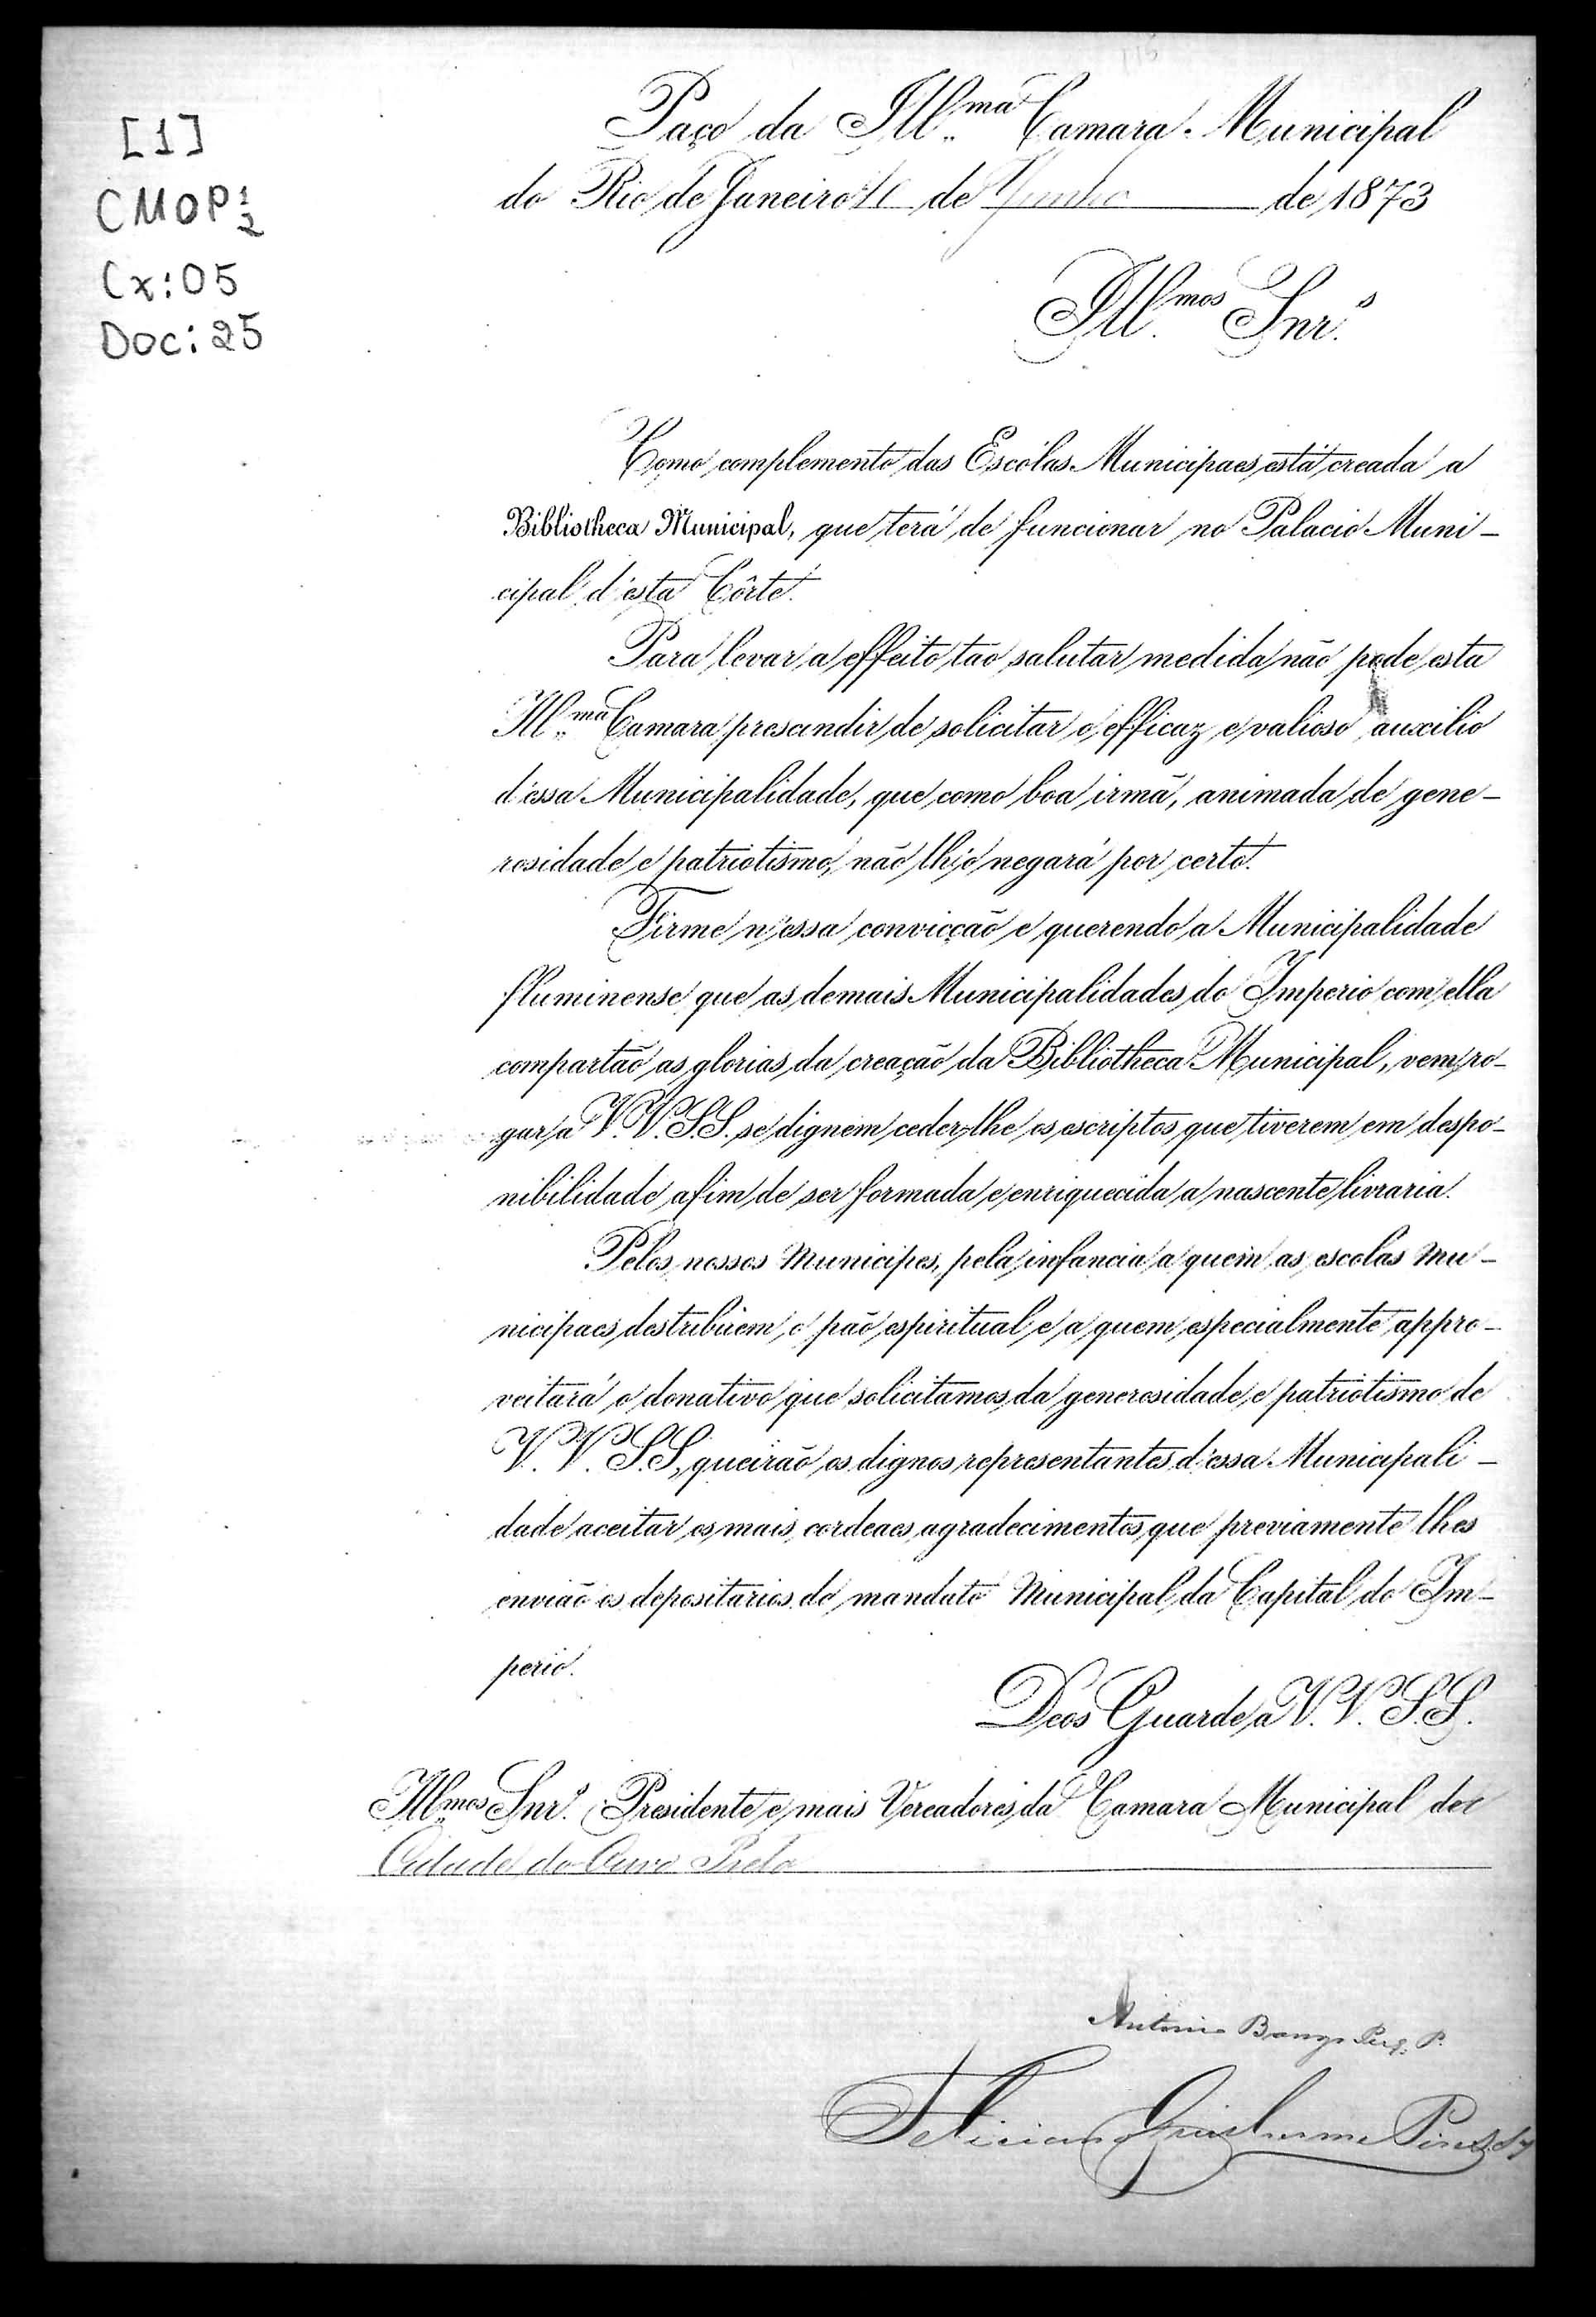 [1]
CMOP 1/2
Cx: 05
Doc: 25
115
Paço da Ill.ma Camara Municipal
do Rio de Janeiro 10 de Junho de 1873
Ill.mos Snr.s
Como complemento das Escólas Municipaes está creada a
Bibliotheca Municipal, que terá de funcionar no Palacio Muni-
cipal d'esta Côrte.
Para levar a effeito tão salutar medida não pode esta
Ill.ma Camara prescindir de solicitar o efficaz e valioso auxilio
d'essa Municipalidade, que como boa irmã, animada de gene-
rosidade e patriotismo, não lh'o negará por certo.
Firme n'essa convicção e querendo a Municipalidade
fluminense que as demais Municipalidades do Imperio com ella
compartão as glorias da creação da Bibliotheca Municipal, vem ro-
gar a V.V.S.S. se dignem ceder-lhe os escriptos que tiverem em despo-
nibilidade afim de ser formada e enriquecida a nascente livraria.
Pelos nossos Municipes, pela infancia a quem as escolas Mu-
nicipaes destribuem o pão espiritual e a quem especialmente appro-
veitará o donativo que solicitamos da generosidade e patriotismo de
V.V.S.S, queirão os dignos representantes d'essa Municipali-
dade aceitar os mais cordeaes agradecimentos que previamente lhes
envião os depositarios do mandato Municipal da Capital do Im-
perio.
Deos Guarde a V.V.S.S.
Ill.mos Snr.s Presidente e mais Vereadores da Camara Municipal da
Cidade do Ouro Preto
Antonio P.
Feliciano Guilherme Pires